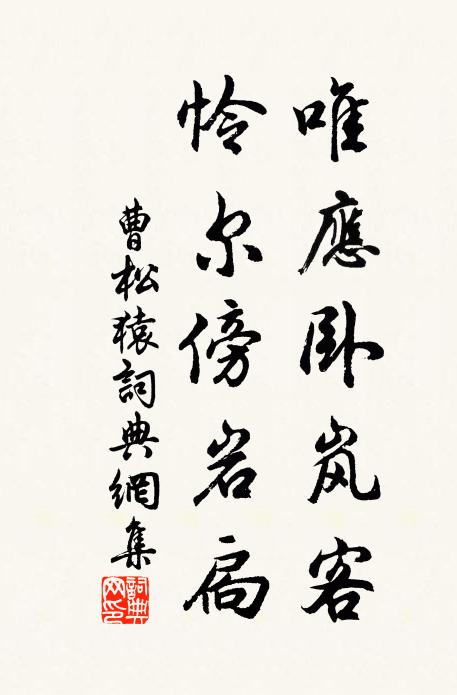 唯應卧岚客
怜尔傍岩扃
曹松猿詞典網集
詞典网印